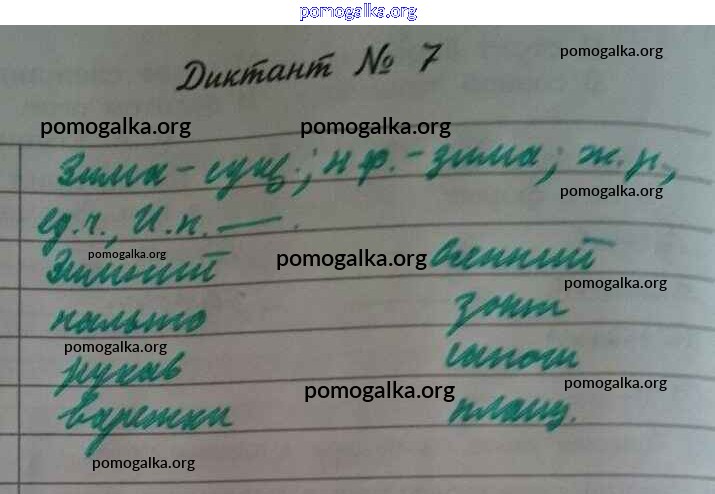 pomogalka.org
Диктант № 7 pomogalka.org
pomogalka.org pomogalka.org
Зима – сущ.; н.ф. – зима; ж.р.,
pomogalka.org
ед.ч., И.п. —.
pomogalka.org pomogalka.org
Зимний осенний
pomogalka.org
пальто зонт
pomogalka.org
рукав сапоги
pomogalka.org pomogalka.org
варежки плащ.
pomogalka.org